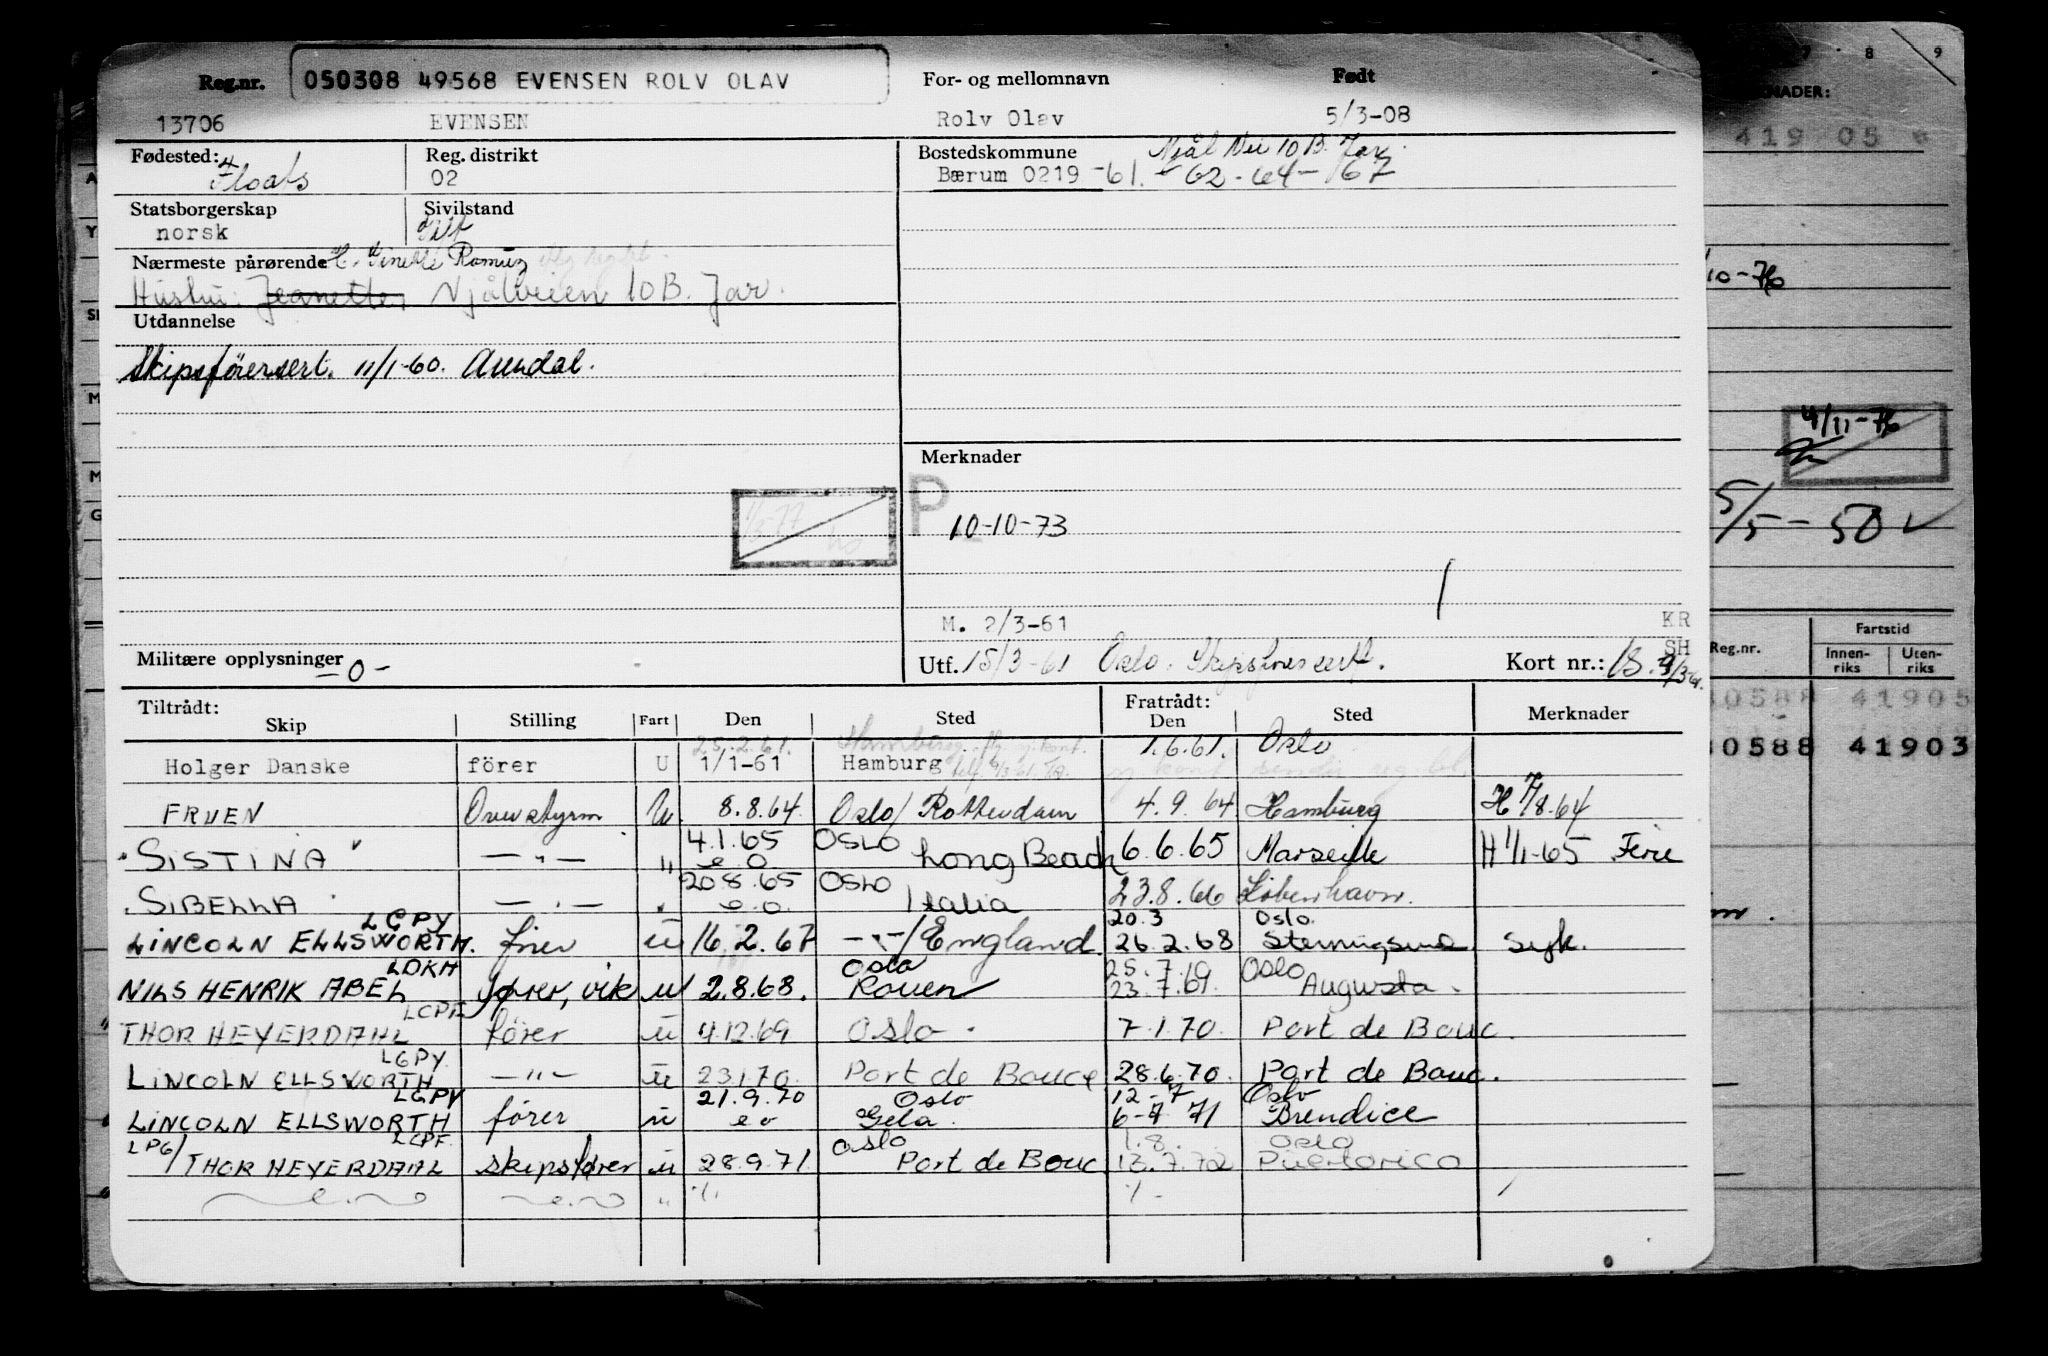 7 8 9
Reg.nr. 050308 49568 EVENSEN ROLV OLAV For- og mellomnavn Født
13706 EVENSEN Rolv Olav 5/3-08
Fødested: Reg. distrikt Bostedskommune 10 B. Jar.
02 Bærum 0219 -61. - 62 - 64 - 67
Statsborgerskap Sivilstand
norsk Gift
Nærmeste pårørende
Hustru: Jeanette, Njålveien 10 B. Jar.
Utdannelse
Skipsførersert. 11/1-60. Arendal.
Merknader
P
10-10-73
M. 2/3-61 KR
SH
Militære opplysninger -0- Utf. 15/3-61 Oslo. Kort nr.:
Tiltrådt: Fratrådt:
Skip Stilling Fart Den Sted Den Sted Merknader
25.2.61. 1.6.61. Oslo
Holger Danske förer U 1/1-61 Hamburg
FRUEN Overstyrm U. 8.8.64. Oslo/ Rotterdam 4.9.64 Hamburg H 7/8.64
4.1.65 OSLO
"SISTINA" — " — " e.o. Long Beach 6.6.65 Marseille H 1/1-65 Ferie
20.8.65 OSLO
"SIBELLA" — " — " e.o. Italia 23.8.66 København.
LGPY 20.3 Oslo.
LINCOLN ELLSWORTH. fører u 16.2.67 — " —/ England. 26.2.68 Syk.
LDKH Oslo 25.7.69 Oslo
NILS HENRIK ABEL fører, vik u 2.8.68. Rouen 23.7.69. Augusta.
LCPF
THOR HEYERDAHL fører u 4.12.69 Oslo. 7.1.70. Port de Bouc.
LGPY
LINCOLN ELLSWORTH — " — u 23.1.70. Port de Bouce 28.6.70. Port de Bouc.
LGPY 21.9.70 Oslo 12-7 Oslo
LINCOLN ELLSWORTH fører u e o Gela. 6-7 71 Brendice
LPG/ LCPF Oslo 1.8. Oslo
THOR HEYERDAHL skipsfører u 28.9.71. Port de Bouc 13.7.72 Puertorico
NADER:
419 05
/10-76
4/11-76
5/5-50
Fartstid
Reg.nr. Innen-riks Uten-riks
30588 41905
30588 41903